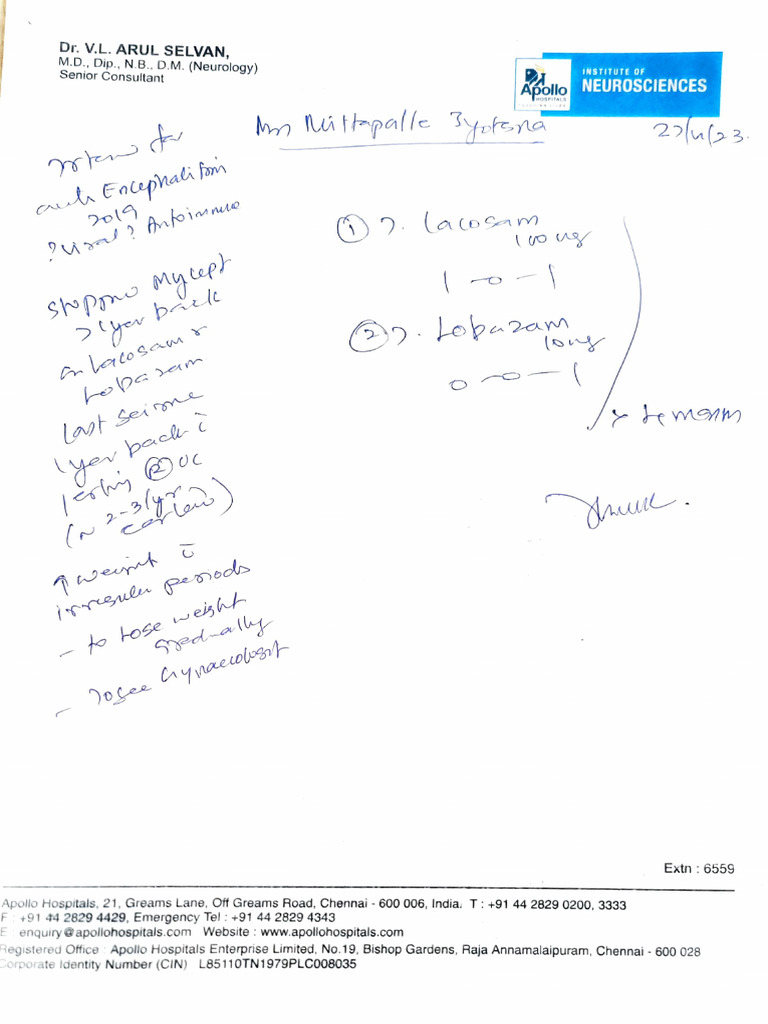 Dr. V.L. ARUL SELVAN,
M.D., Dip., N.B., D.M. (Neurology)
Senior Consultant
Apollo
HOSPITALS
INSTITUTE OF
NEUROSCIENCES
Mittapalle
Encephalitis
2019
? Viral ? Autoimmune
Mycept
> 1 year back
on Lacosam &
Lobazam
Last Seizure
1 year back
(~ 2-3/yr
earlier)
↑ weight c̄
irregular periods
- to lose weight
gradually
- To see Gynaecologist
① T. Lacosam
100mg
1 - 0 - 1
② T. Lobazam
10mg
0 - 0 - 1
Extn : 6559
Apollo Hospitals, 21, Greams Lane, Off Greams Road, Chennai - 600 006, India. T : +91 44 2829 0200, 3333
F : +91 44 2829 4429, Emergency Tel : +91 44 2829 4343
E : enquiry@apollohospitals.com Website : www.apollohospitals.com
Registered Office : Apollo Hospitals Enterprise Limited, No.19, Bishop Gardens, Raja Annamalaipuram, Chennai - 600 028
Corporate Identity Number (CIN) L85110TN1979PLC008035